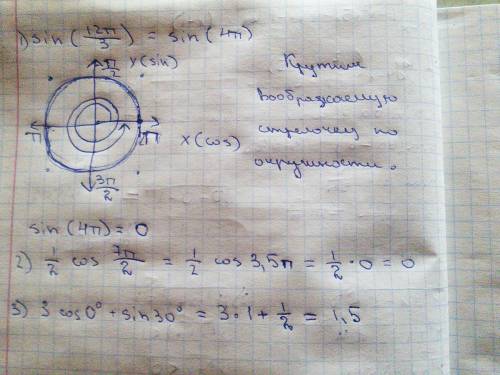 1) sin(12π/3) = sin(4π)
π/2 y(sin)
Крутим
воображаемую
π 2π
x(cos)
стрелочку по
окружности.
3π/2
sin(4π) = 0
2) 1/2 cos 7π/2 = 1/2 cos 3,5π = 1/2 · 0 = 0
3) 3 cos0° + sin30° = 3·1 + 1/2 = 1,5